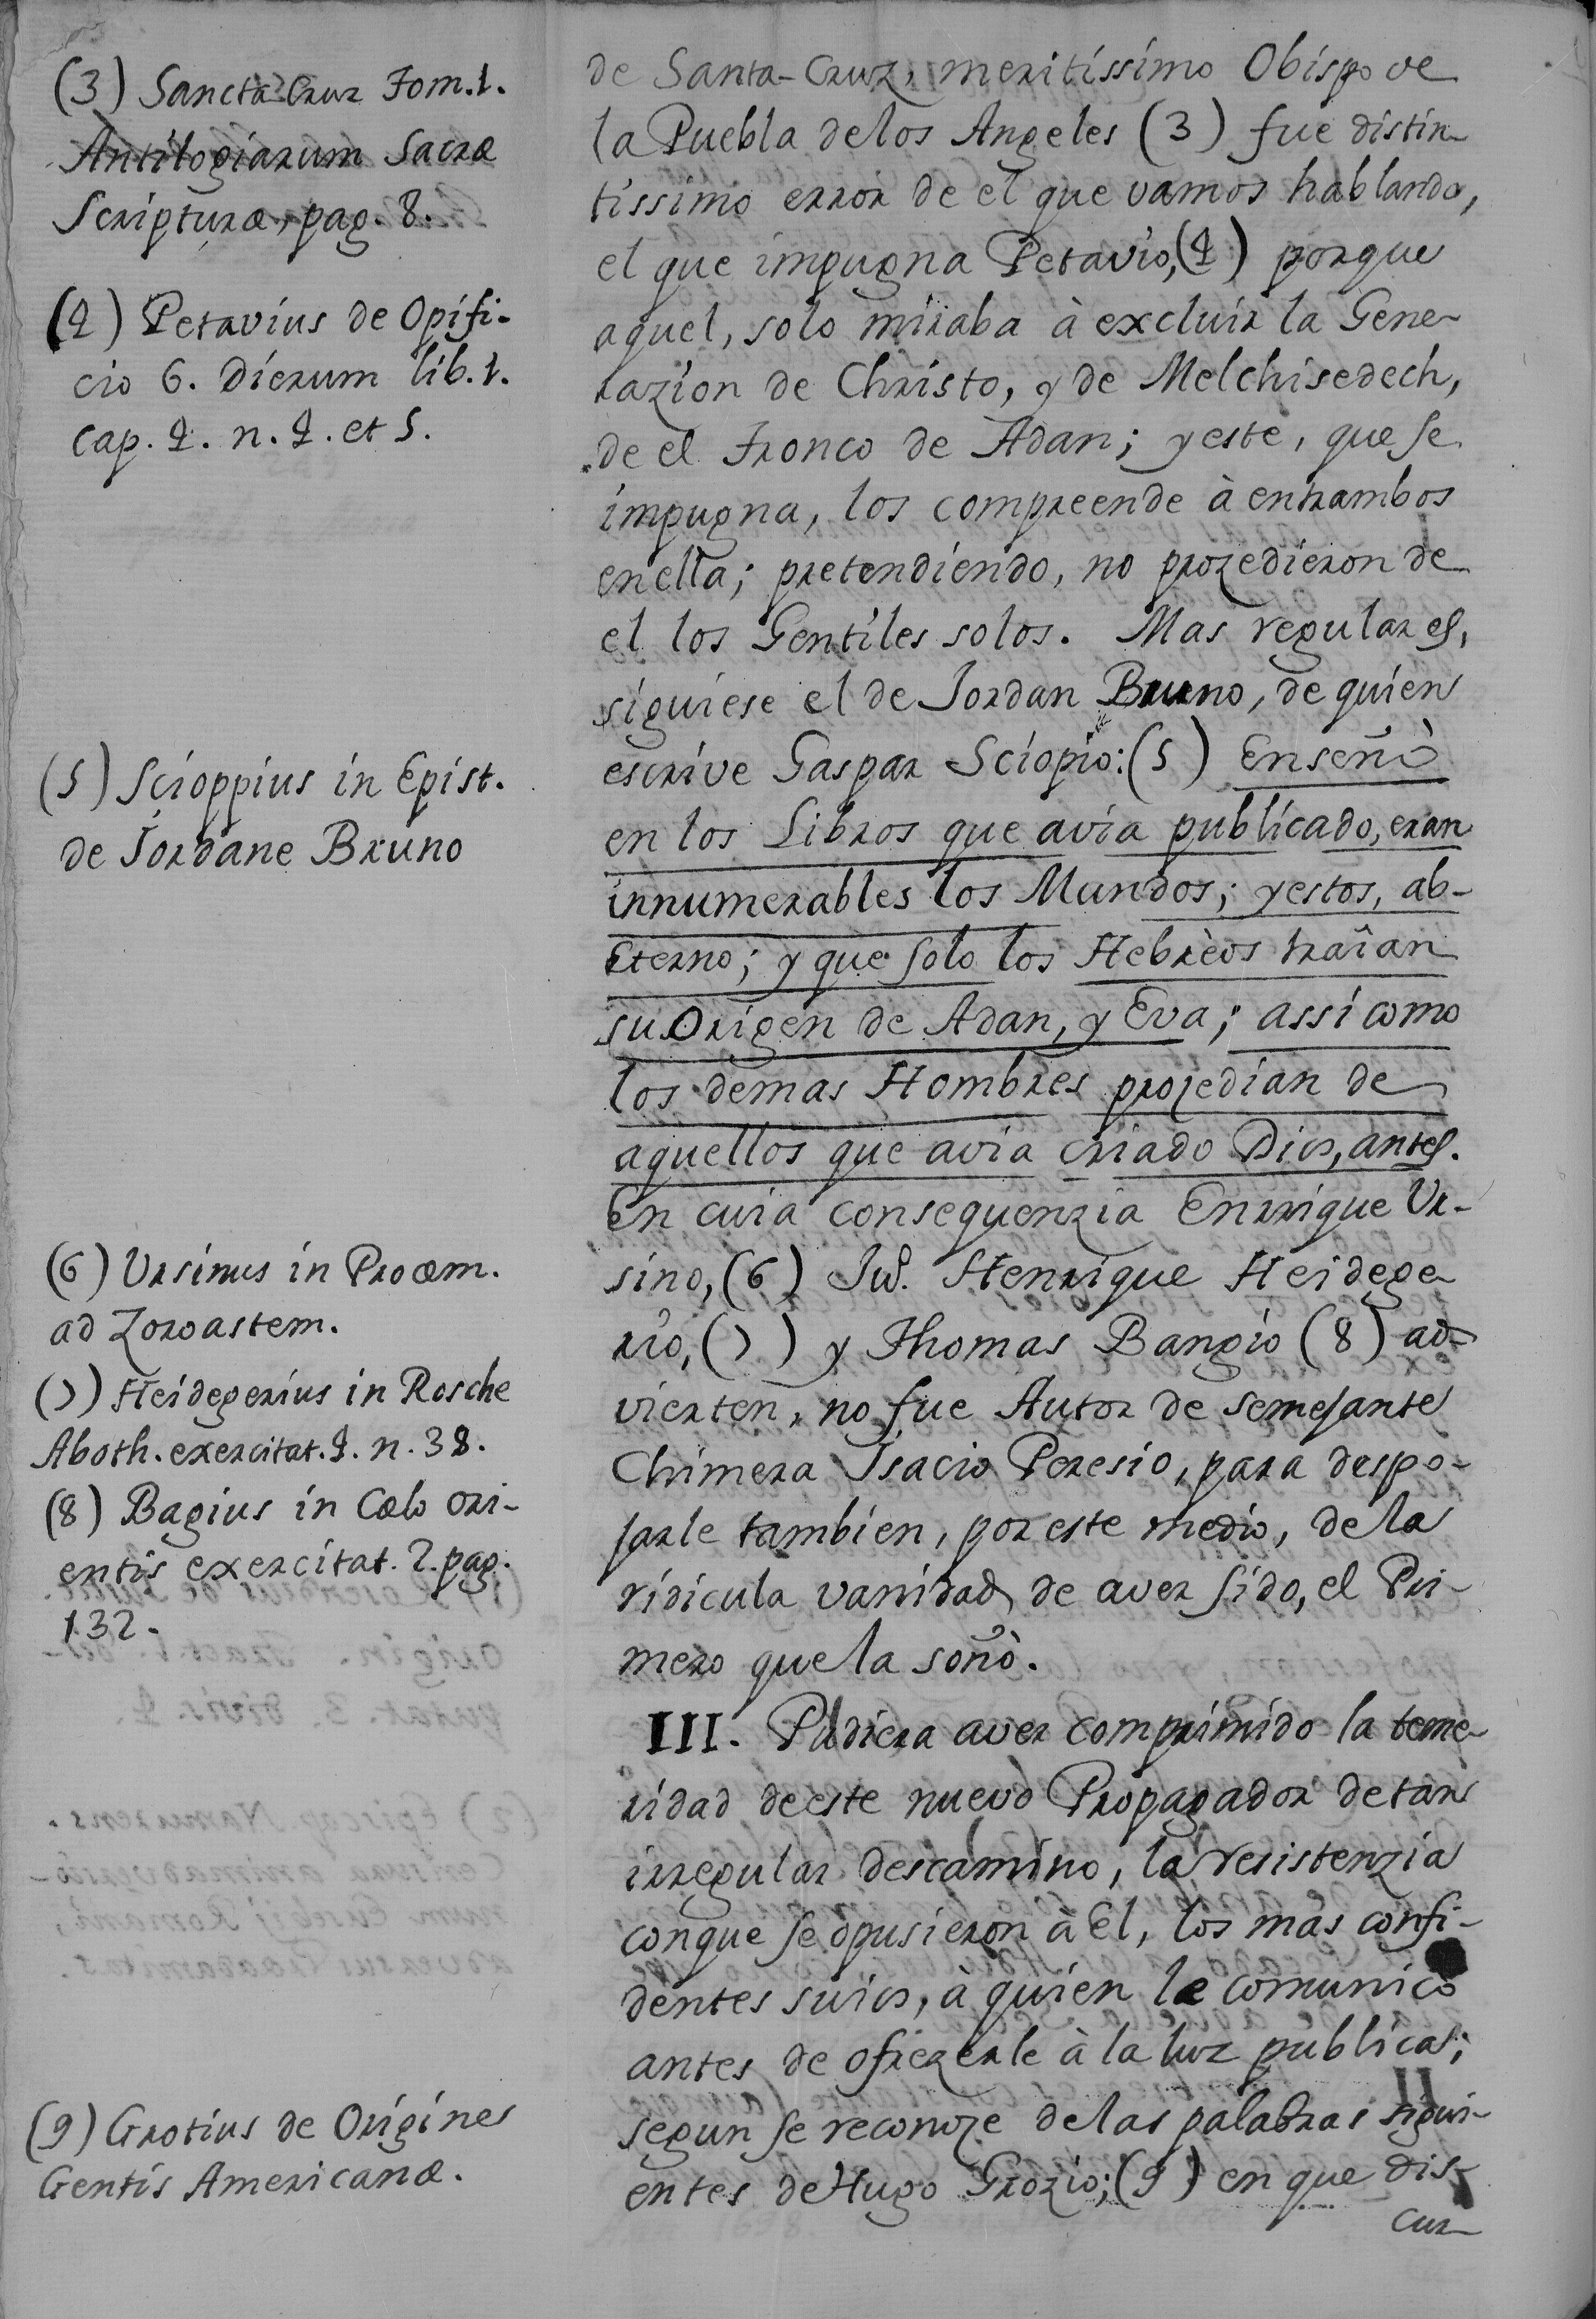 (3) Sancta Cruz Tom. 1.
Antilogiarum Sacræ
Scripturæ, pag. 8.
(4) Petavius de Opifi-
cio 6. Dierum lib. 1.
cap. 4. n. 4. et 5.
(5) Scioppius in Epist.
de Jordane Bruno
(6) Ursinus in Proœm.
ad Zoroastem.
(7) Heidegerius in Rosche
Aboth. exercitat. 4. n. 38.
(8) Bagius in Cœlo ori-
entis exercitat. 2. pag.
132.
(9) Grotius de Origines
Gentis Americanæ.
de Santa-Cruz, meritissimo Obispo de
la Puebla delos Angeles (3) fue distin-
tissimo error de el que vamos hablando,
el que impugna Petavio, (4) porque
aquel, solo miraba à excluir la Gene-
razion de Christo, y de Melchisedech,
de el Tronco de Adan; y este, que se
impugna, los compreende à entrambos
en ella; pretendiendo, no prozedieron de
el los Gentiles solos. Mas regular es,
siguiese el de Jordan Bruno, de quien
escrive Gaspar Sciopio: (5) Enseñò
en los Libros que avia publicado, eran
innumerables los Mundos; y estos, ab-
eterno; y que solo los Hebrèos traîan
su Origen de Adan, y Eva; assi como
los demas Hombres prozedian de
aquellos que avia criado Dios, antes.
En cuia consequenzia Enrrique Ur-
sino, (6) Jũ. Henrrique Heidege-
rio, (7) y Thomas Bangio (8) ad-
vierten, no fue Autor de semejante
Chimera Isacio Peresio, para despo-
jarle tambien, por este medio, de la
ridicula vanidad, de aver sido, el Pri-
mero que la soñò.
III. Pudiera aver comprimido la teme-
ridad de este nuevo Propagador de tan
irregular descamino, la resistenzia
conque se opusieron à èl, los mas confi-
dentes suios, à quien le comunicò
antes de ofrezerle à la luz publica;
segun se reconoze de las palabras sigui-
entes de Hugo Grozio; (9) en que dis-
cur-